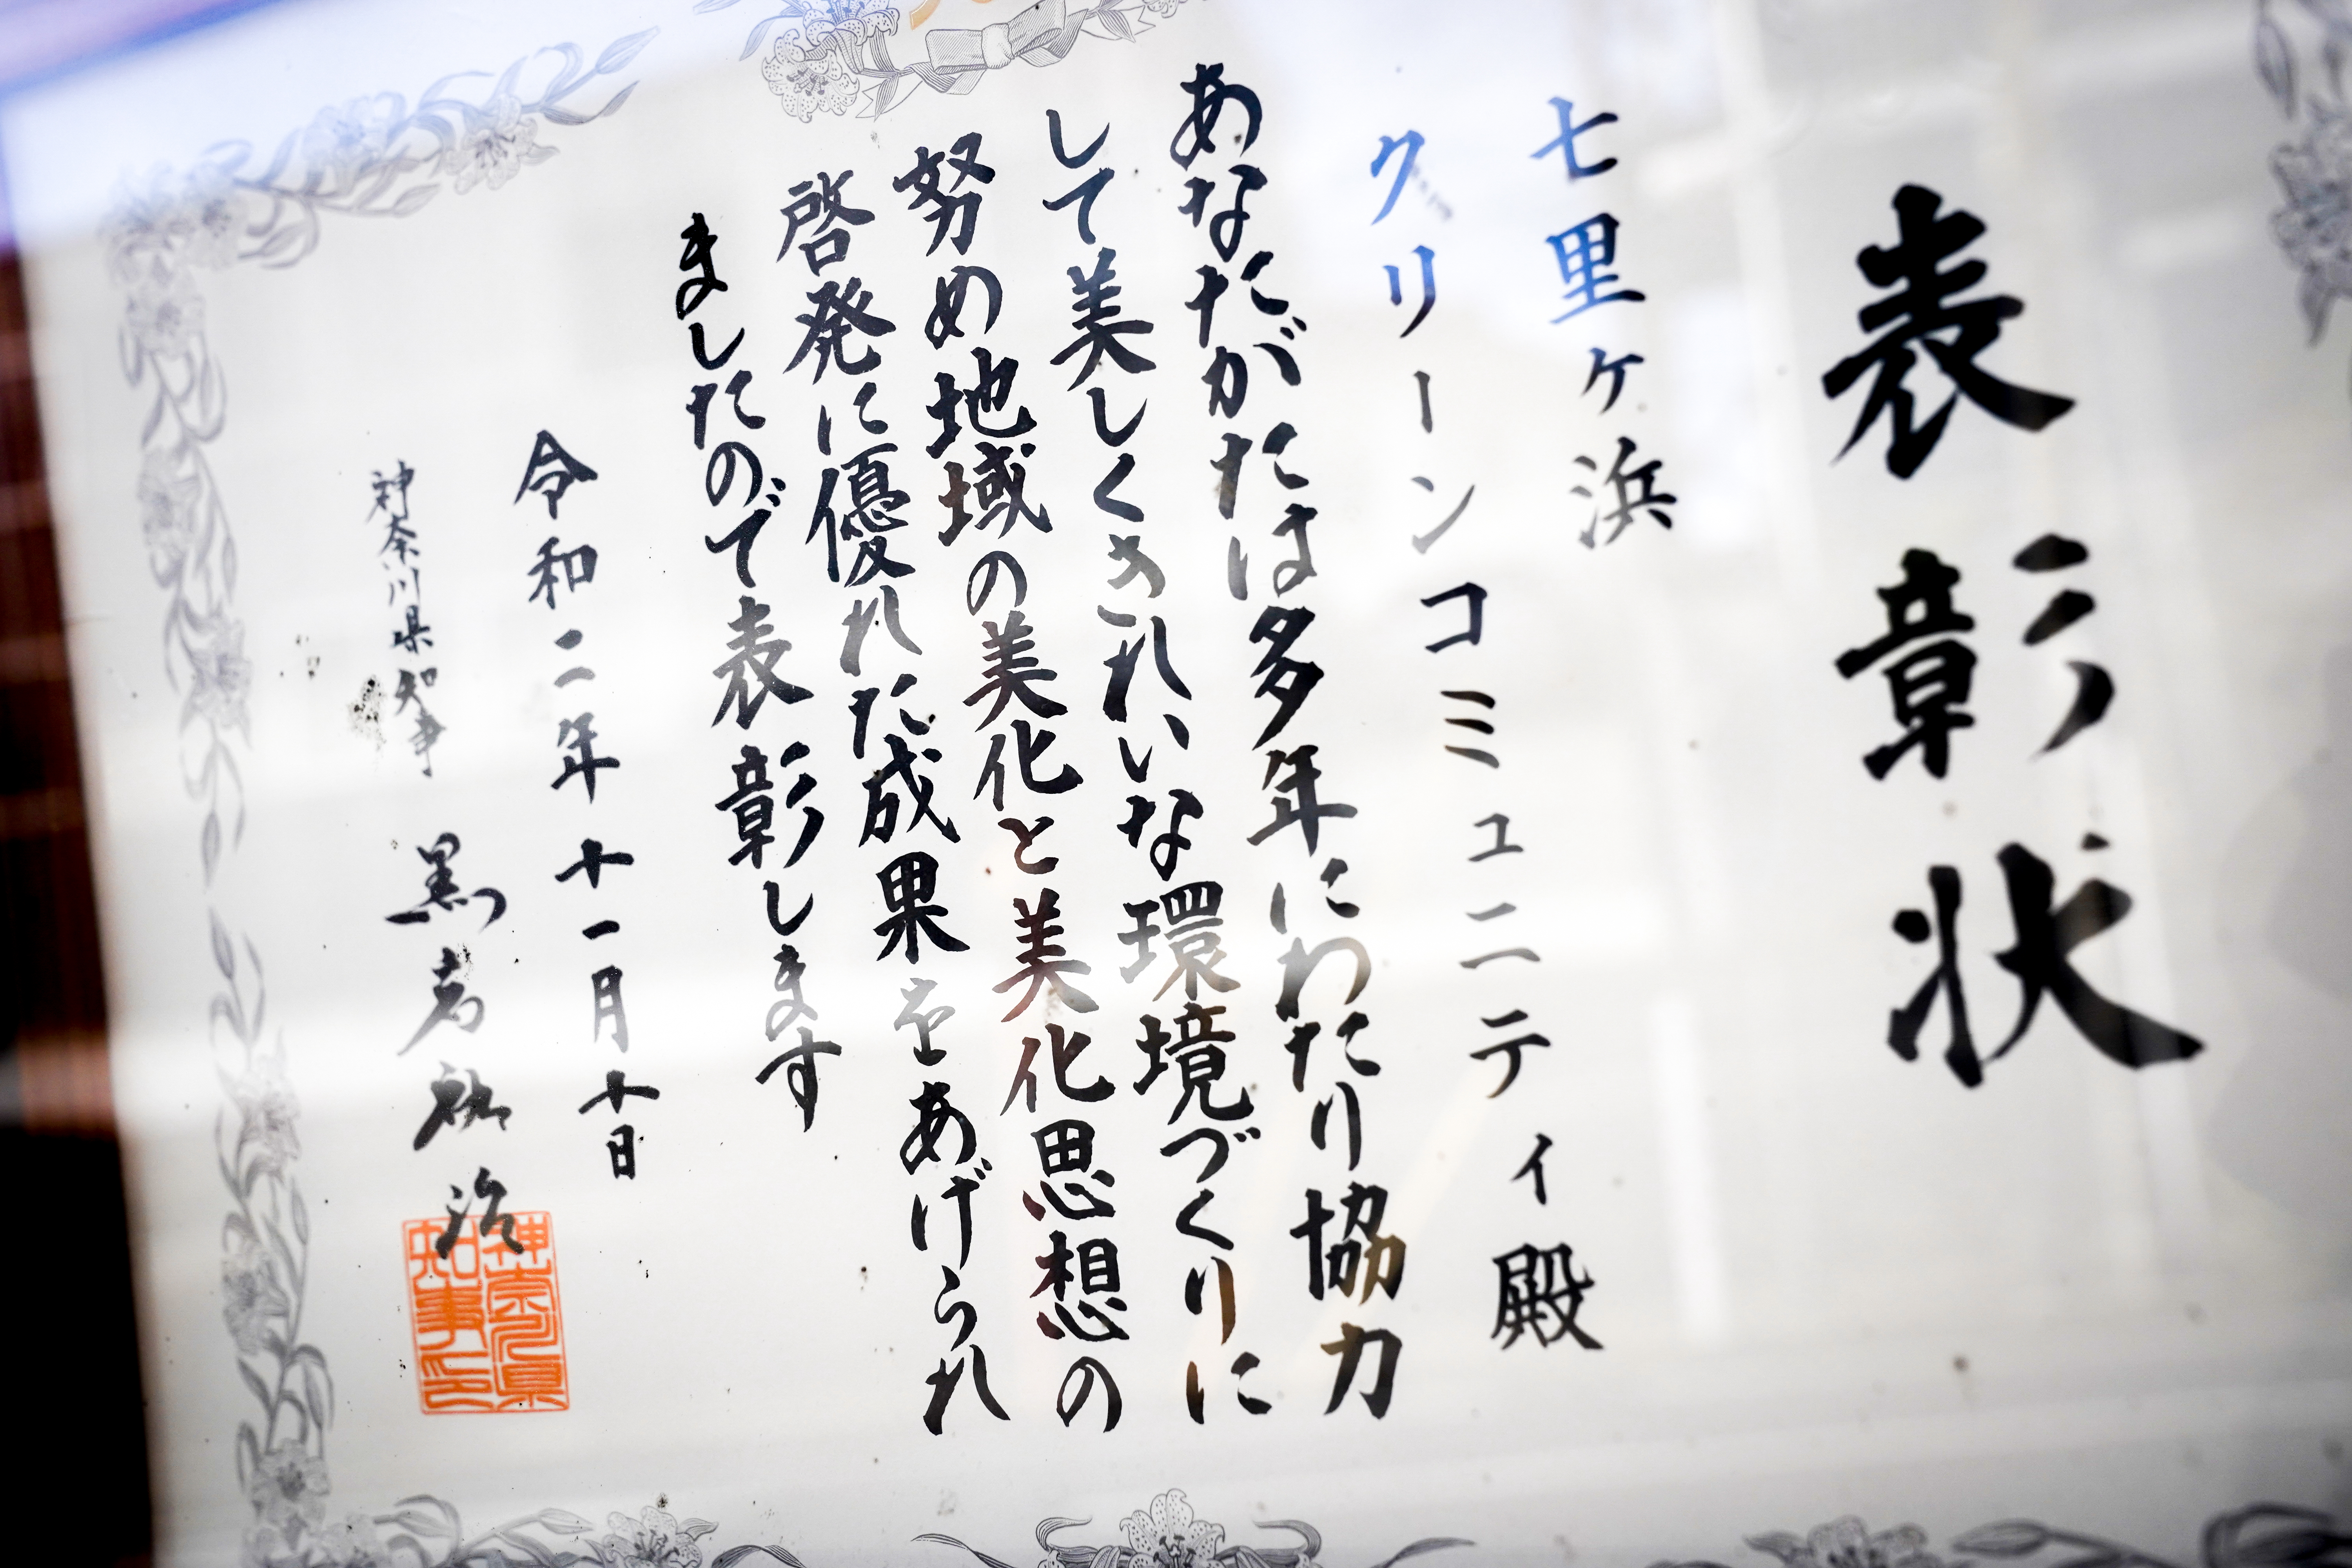 表彰状
七里ヶ浜
クリーンコミュニティ殿
あなたがたは多年にわたり協力
して美しくきれいな環境づくりに
努め地域の美化と美化思想の
啓発に優れた成果をあげられ
ましたので表彰します
令和二年十一月十日
神奈川県知事 黒岩祐治
神奈川県
知事之印